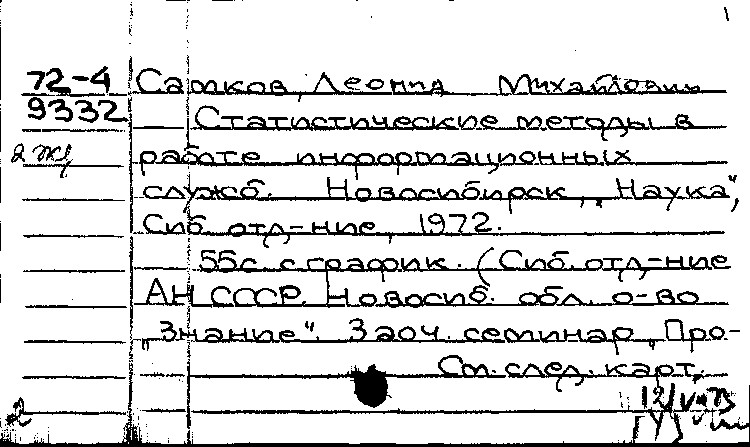 1
72-4 Сапков, Леонид Михайлович
9332 Статистические методы в
2 экз работе информационных
служб. Новосибирск, „Наука",
Сиб. отд-ние, 1972.
55с. с график. (Сиб. отд-ние
АН СССР. Новосиб. обл. о-во
„Знание". Заоч. семинар „Про-
См. след. карт.
2